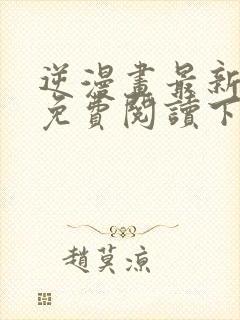 逆漫畫最新
免費閱讀下
趙莫涼